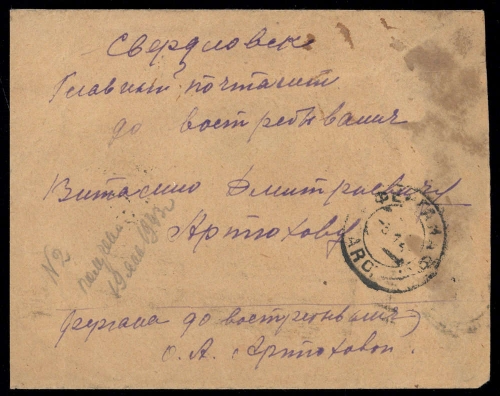 Свердловск
Главный почтамт
до востребования
Виталию Дмитриевичу
Артюхову
N2
получена
Фергана до востребования
О. А. Артюховой.